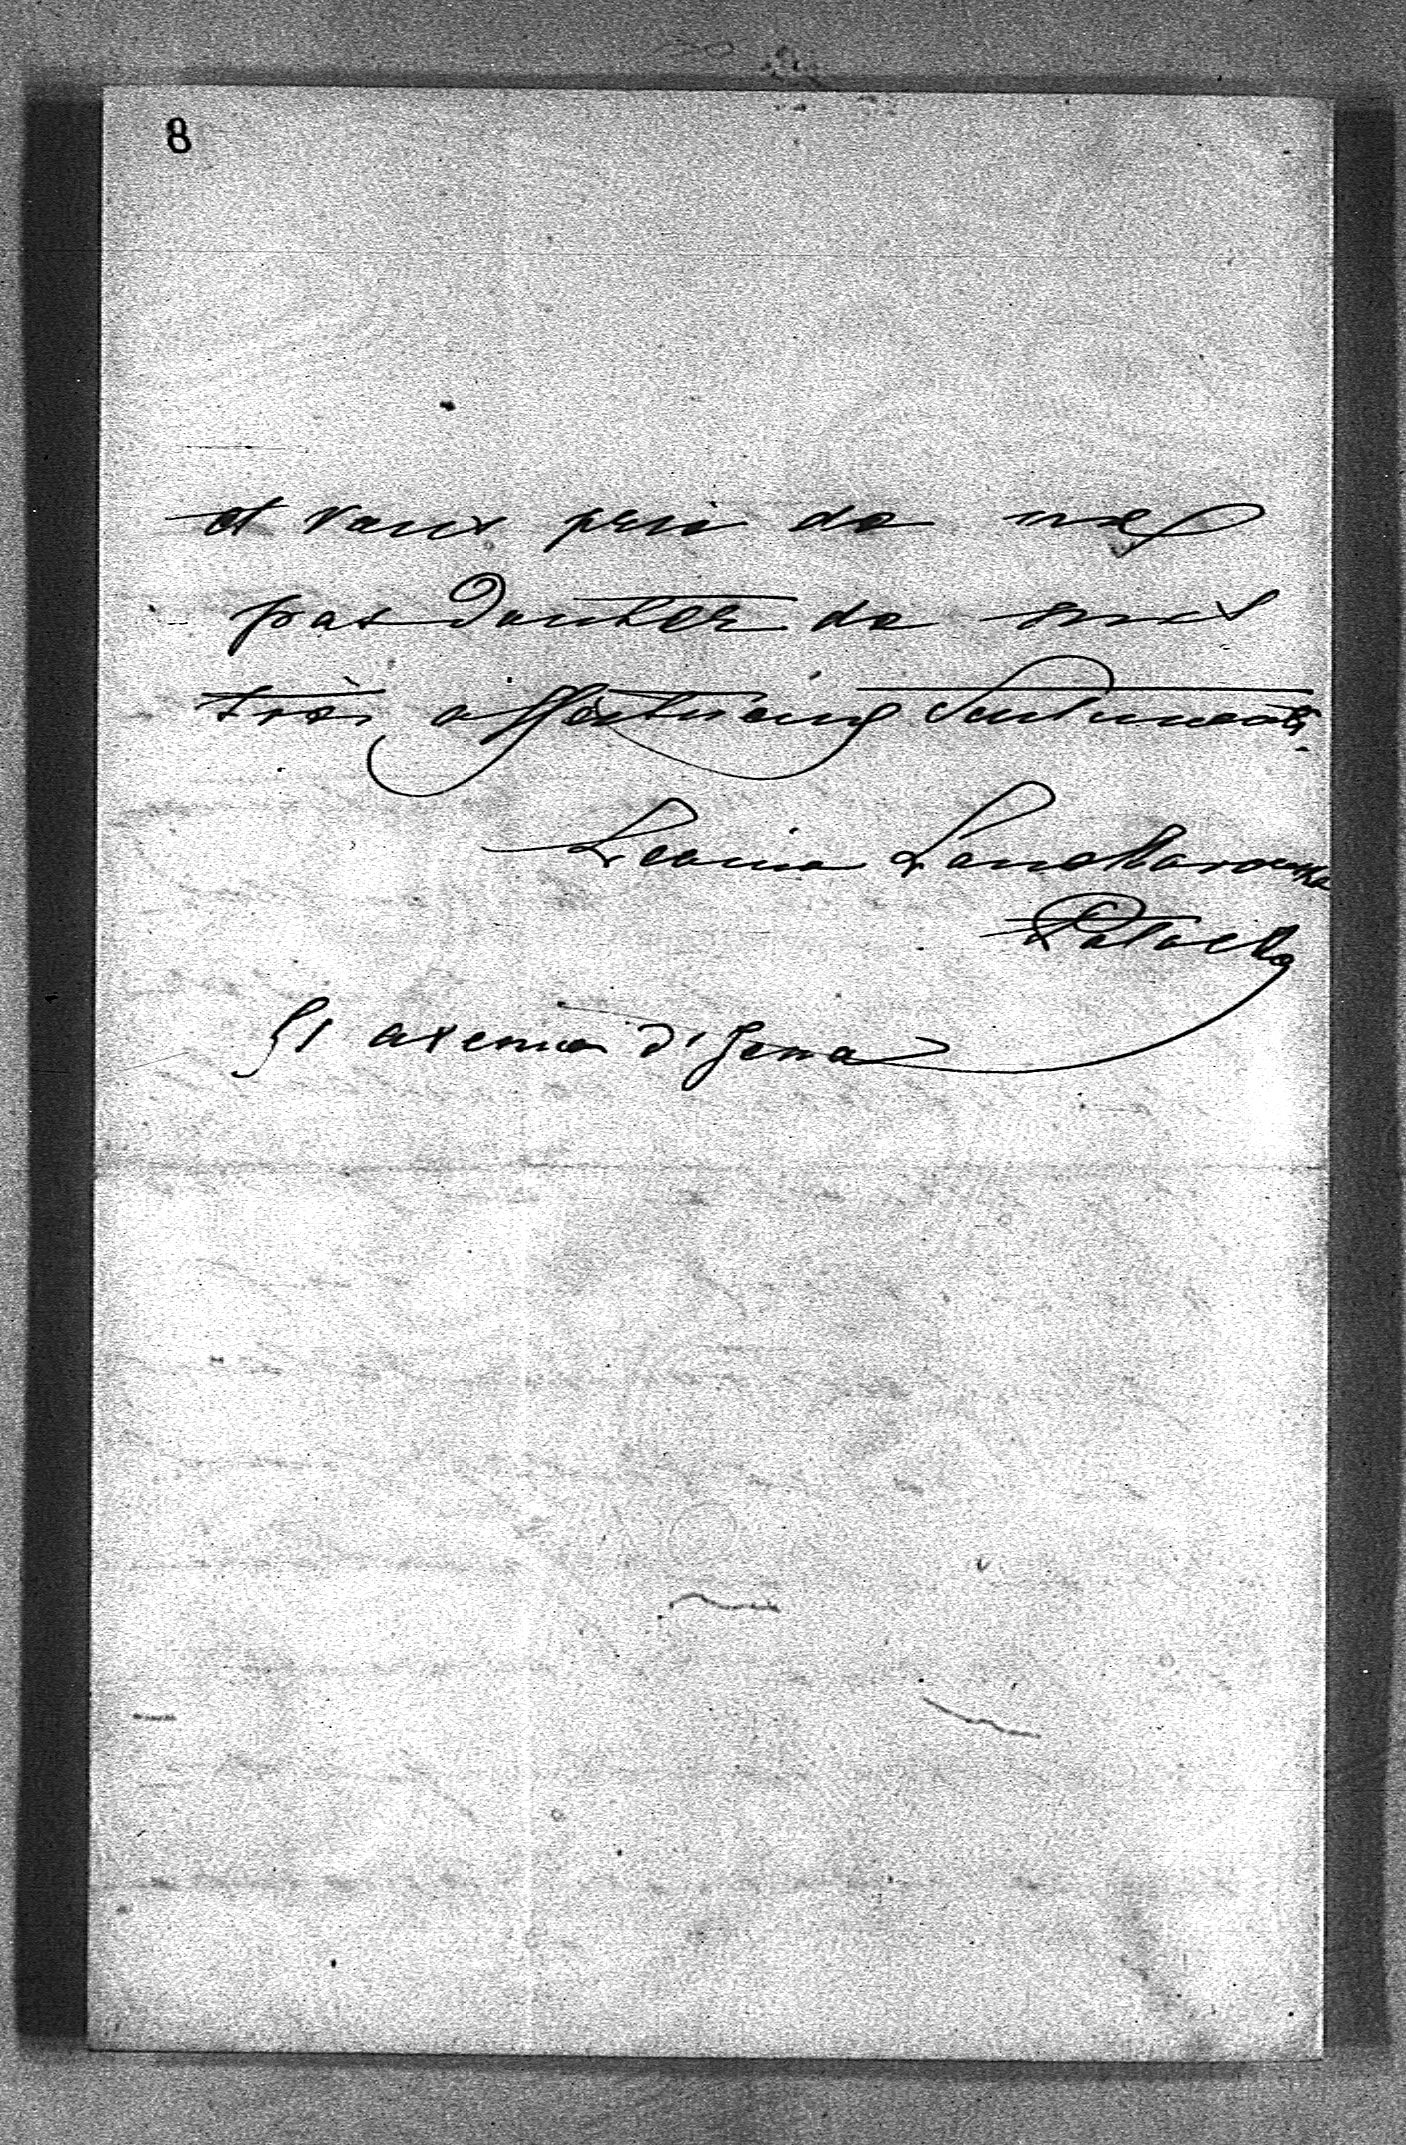 8
et vous prie de ne
pas douter de mes
très affectueux sentiments.
Léonie Lanckarouska
Potocka
51 avenue d'Jena